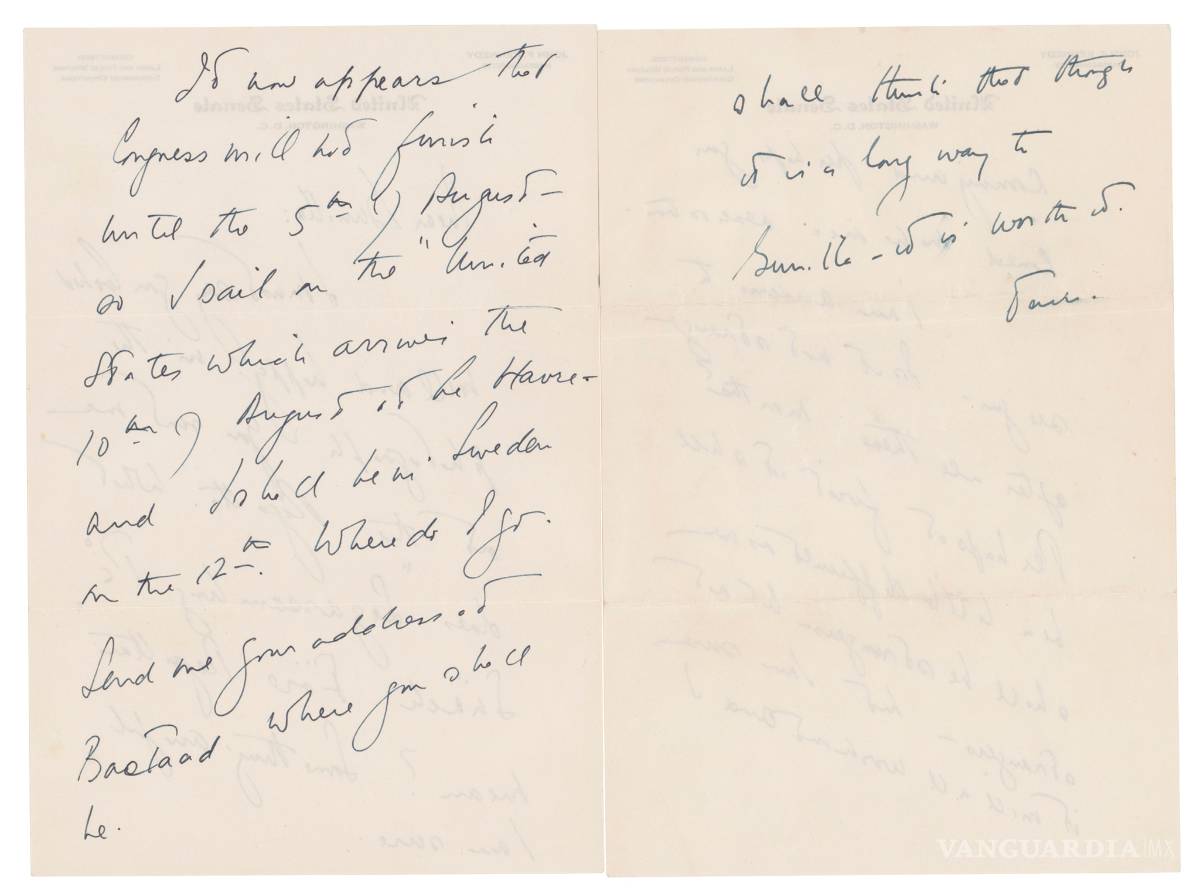 It now appears that
Congress will not finish
until the 5th of August –
so I sail on the "United
States which arrives the
10th of August at Le Havre –
and I shall be in Sweden
on the 12th. Where do I go.
Send me your address at
Bastaad where you shall
be.
shall think that though
it is a long way to
Gunilla – it is worth it.
Jack.
VANGUARDIA|MX